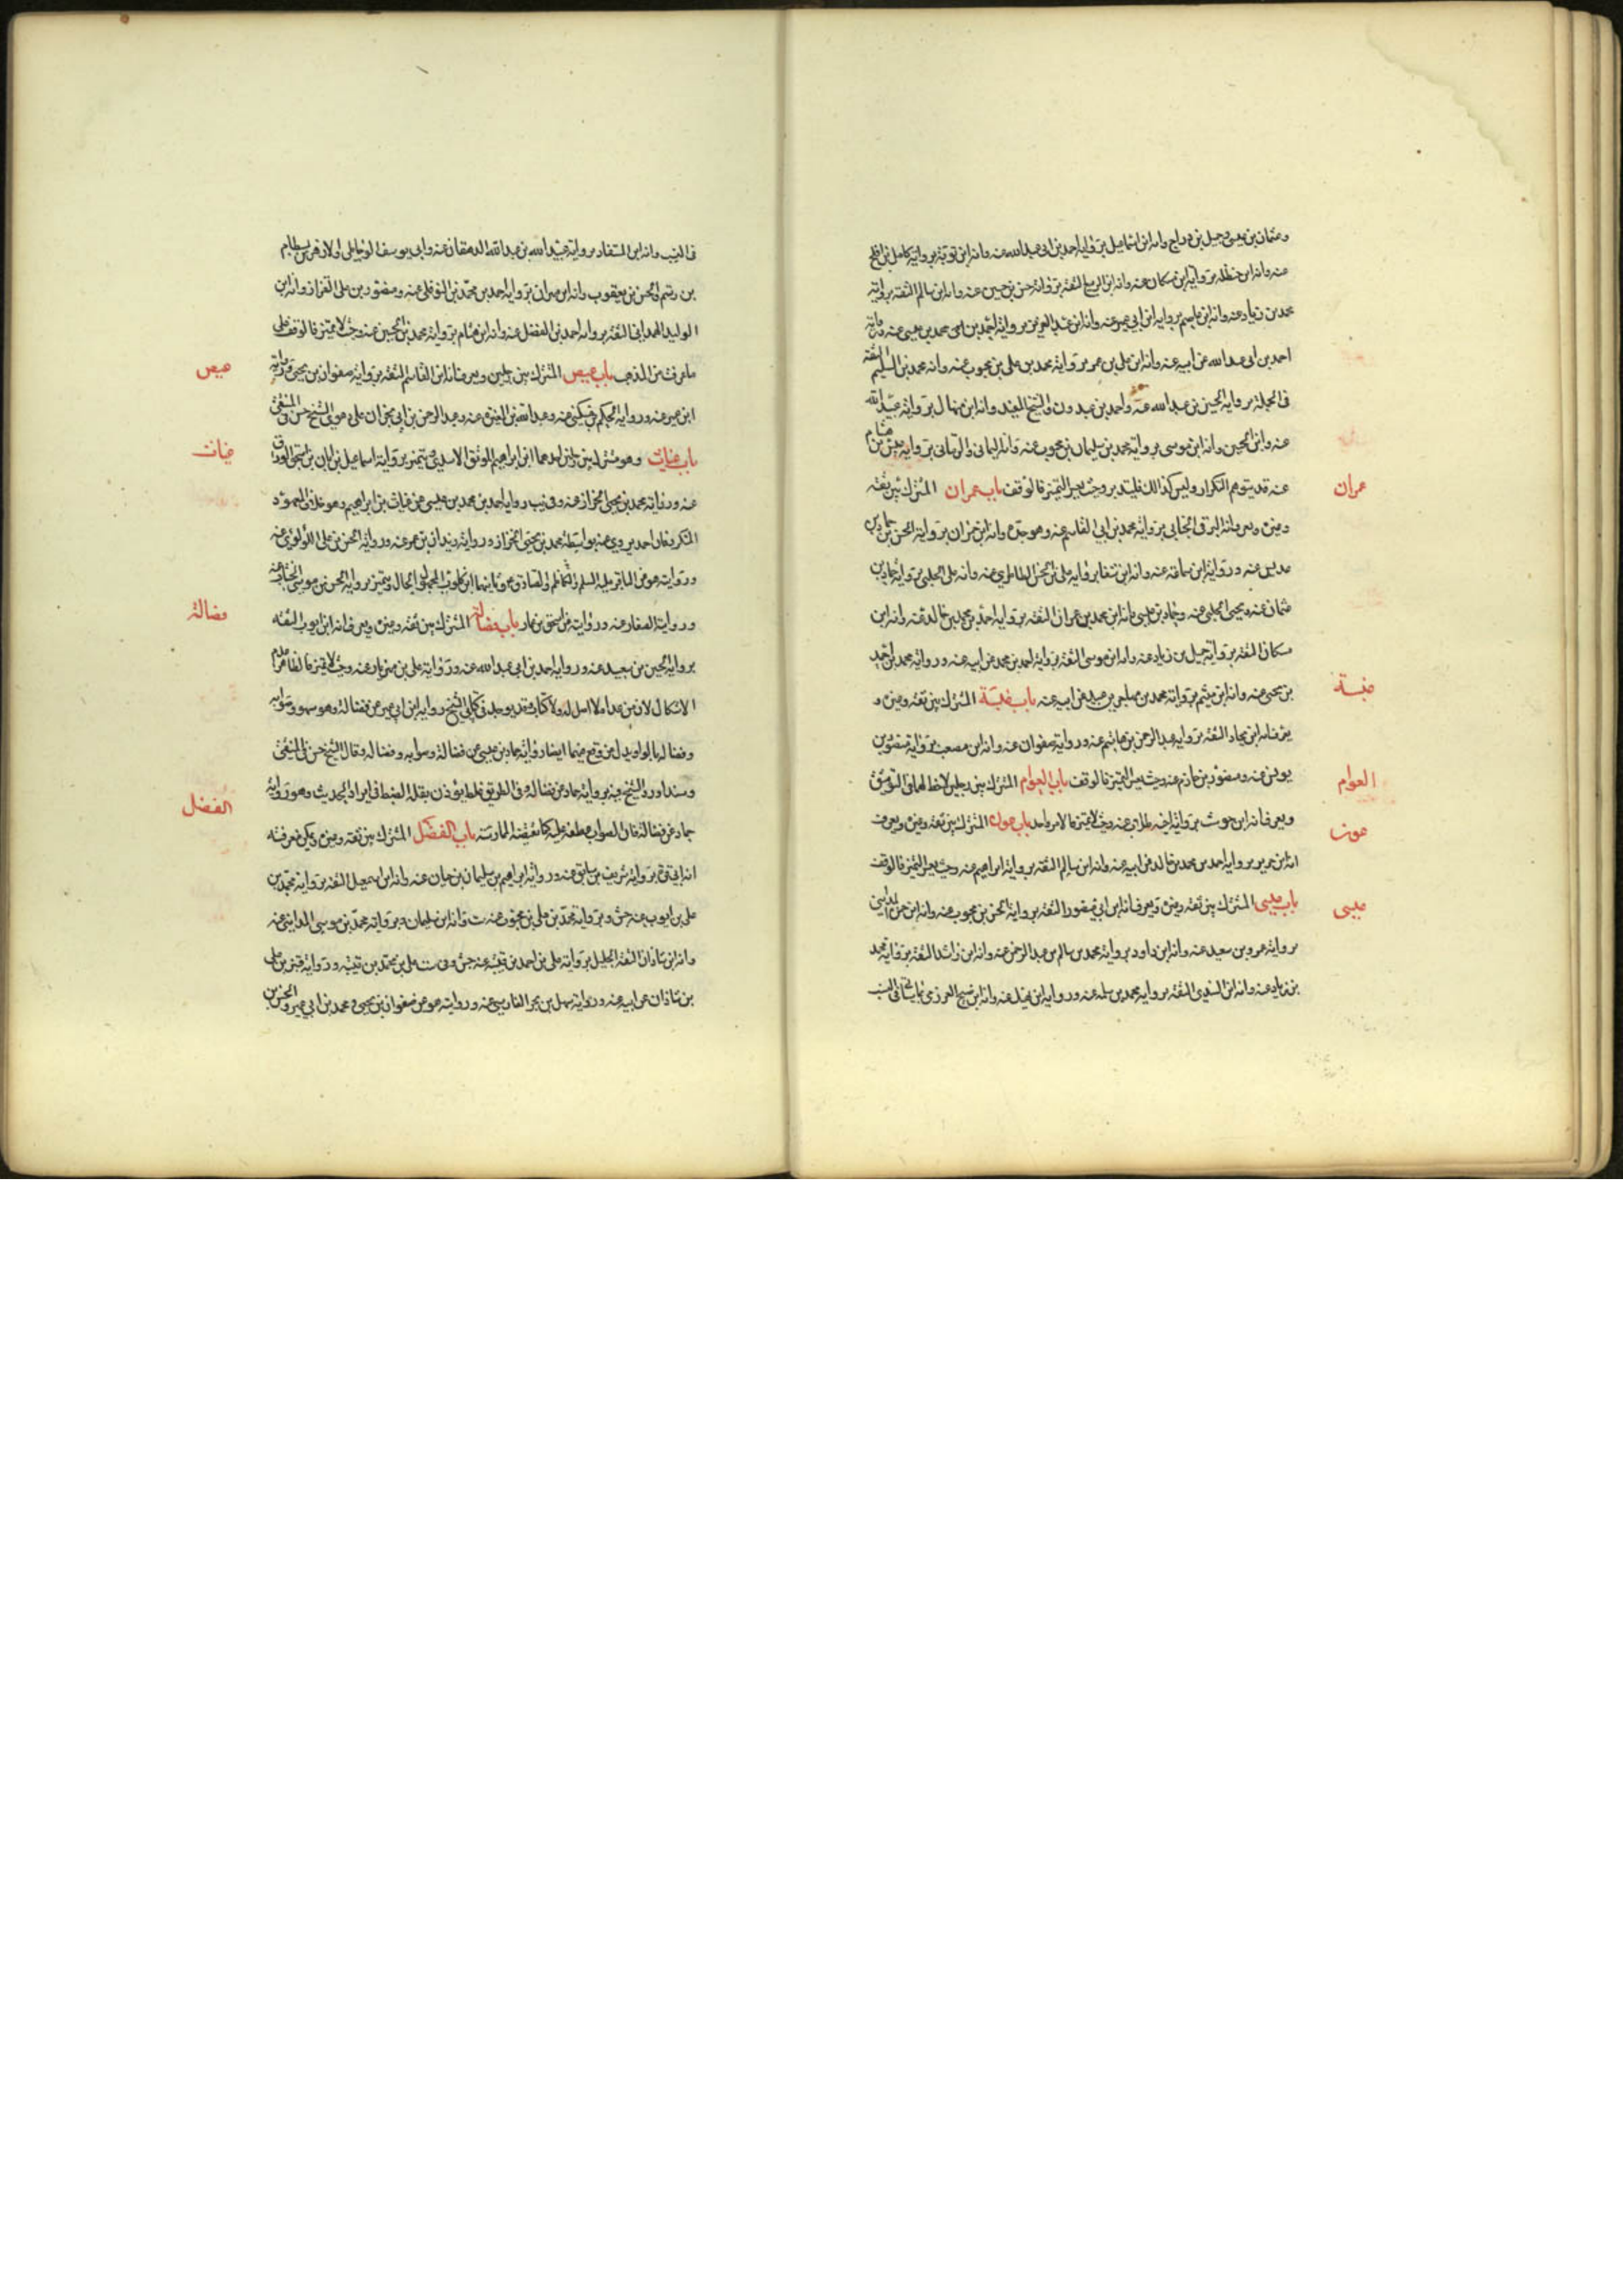 وعثمان بن عيسى وجميل بن دراج وانه ابن اسماعيل برواية احمد بن ابي عبدالله عنه وانه ابن توبة برواية كامل بن افلح
عنه وانه ابن حنظله برواية ابن مسكان عنه وانه ابن الربيع الثقة برواية حسن بن حسين عنه وانه ابن سالم الثقه برواية
محمد بن زياد عنه وانه ابن عاصم برواية ابن ابي عمير عنه وانه ابن عبدالعزيز برواية احمد بن محمد بن عيسى عنه
احمد بن ابي عبدالله عن ابيه عنه وانه ابن علي بن عمر برواية محمد بن علي بن محبوب عنه وانه محمد بن السليم الثقة
في الجملة برواية الحسين بن عبيدالله عنه واحمد بن عبدون والشيخ المفيد وانه ابن منهال برواية عبيدالله
عنه وابن الحسين وانه ابن موسى برواية محمد بن سليمان بن محبوب عنه وانه اليماني والرماني برواية عبيس بن هشام
عنه قد يتوهم التكرار وليس كذالك فليتدبر وحيث يعسر التميز فالوقف باب عمران المشترك بين ثقه
عمران
وغيره ويعرف انه البرقي الجنابي برواية محمد بن ابي القاسم عنه وهو جده وانه ابن حمران برواية الحسن بن حماد بن
عديس عنه ورواية ابن سماعة عنه وانه ابن شفا برواية علي بن الحسن الطاطري عنه وانه علي الحلبي برواية حماد بن
عثمان عنه ويحيى الحلبي عنه وحماد بن عيسى وانه ابن محمد بن عمران الثقة برواية احمد بن محمد بن خالد عنه وانه ابن
مسكان الثقة برواية حميل بن زياد عنه وانه ابن موسى الثقة برواية احمد بن محمد عن ابيه عنه ورواية محمد بن احمد
بن يحيى عنه وانه ابن ميثم برواية محمد بن عنه باب عنبسة المشترك بين ثقة وغيره و
عنبسة
يعرف انه ابن بجاد الثقة برواية عبدالرحمن بن هاشم عنه ورواية صفوان عنه وانه ابن مصعب برواية منصور بن
يونس عنه ومنصور بن حازم عنه وحيث يعسر التميز فالوقف باب العوام المشترك بين رجلين لاحظ لهما في التوثيق
العوام
ويعرف انه ابن حوشب برواية عنه وحيث لا تميز فالامر واحد باب عون المشترك بين ثقة وغيره ويعرف
عون
انه ابن جرير برواية احمد بن محمد بن خالد عن ابيه عنه وانه ابن سالم الثقة برواية ابراهيم عنه وحيث يعسر التميز فالوقف
باب عيسى المشترك بين ثقة وغيره ويعرف انه ابن ابي منصور الثقة برواية الحسن بن محبوب عنه وانه ابن
عيسى
برواية عمرو بن سعيد عنه وانه ابن داود برواية محمد بن سالم بن عبدالرحمن عنه وانه ابن راشد الثقة برواية محمد
بن زياد عنه وانه ابن السندي الثقة برواية محمد بن سلمه عنه ورواية ابن عنه وانه ابن صبيح العرزمي
في النسب وانه ابن المستفاد برواية عبيدالله بن عبدالله الدهقان عنه وابي يوسف الوحاظي
بن رستم والحسن بن يعقوب وانه ابن مهران برواية احمد بن محمد بن النوفلي عنه ومنصور بن علي القزاز وانه ابن
الوليد الهمداني الثقة برواية احمد بن الفضل عنه وانه ابن هشام برواية محمد بن الحسين عنه وحيث لا تميز فالوقف على
ما عرفت من المذهب باب عيص المشترك بين رجلين ويعرف انه ابن القاسم الثقة برواية صفوان بن يحيى ورواية
عيص
ابن عمير عنه ورواية الحكم بن مسكين عنه وعبدالله بن المغيرة عنه وعبدالرحمن بن ابي نجران على دعوى الشيخ حسن في المنتقى
باب غياث وهو مشترك بين رجلين احدهما ابن ابراهيم الموثق الاسيدي ويتميز برواية اسماعيل بن ابان بن اسحق الوراق
غياث
عنه ورواية محمد بن يحيى الخزاز عنه وفي يب رواية احمد بن محمد بن عيسى عن غياث بن ابراهيم وهو خلاف المعهود
المتكرر فان احمد يروي عنه بواسطة محمد بن يحيى الخزاز ورواية زيدان بن عمر عنه ورواية الحسن بن علي اللؤلؤي عنه
وروايته هو عن الباقر عليه السلم والكاظم والصادق
ورواية الصفار عنه وروايته عن اسحق بن عمار باب فضالة المشترك بين ثقة وغيره ويعرف انه ابن ايوب الثقه
فضالة
برواية الحسين بن سعيد عنه ورواية احمد بن ابي عبدالله عنه ورواية علي بن مهزيار عنه وحيث لا تميز فالظاهر عدم
الاشكال لان من عداه لا اصل له ولا كتاب وقد يوجد في كتابي الشيخ رواية ابن ابي عمير عن فضالة وهو سهو وصوابه
وفضالة بالواو بدل عن وقع منهما ايضا رواية حماد بن عيسى عن فضالة وصوابه وفضاله وقال الشيخ حسن في المنتقى
وسند اورد الشيخ فيه برواية حماد عن فضالة وفي الطريق غلط يؤذن بقلة الضبط في ايراد الحديث وهو رواية
حماد عن فضالة فان الصواب عطفه عليه كما تقتضيه الممارسة باب الفضل المشترك بين ثقة وغيره ويمكن معرفته
الفضل
انه ابن قرة برواية شريف بن سابق عنه ورواية ابراهيم بن سليمان بن حيان عنه وانه ابن اسمعيل الثقة برواية محمد بن
علي بن ايوب عنه جش وبرواية محمد بن علي بن محبوب عنه ست وانه ابن سليمان برواية محمد بن موسى المدايني عنه
وانه ابن شاذان الثقة الجليل برواية علي بن احمد بن قتيبة عنه جش وفي ست علي بن محمد بن قتيبة ورواية قنبر بن علي
بن شاذان عن ابيه عنه ورواية سهل بن بحر الفارسي عنه وروايته هو عن صفوان بن يحيى ومحمد بن ابي عمير والحسن بن